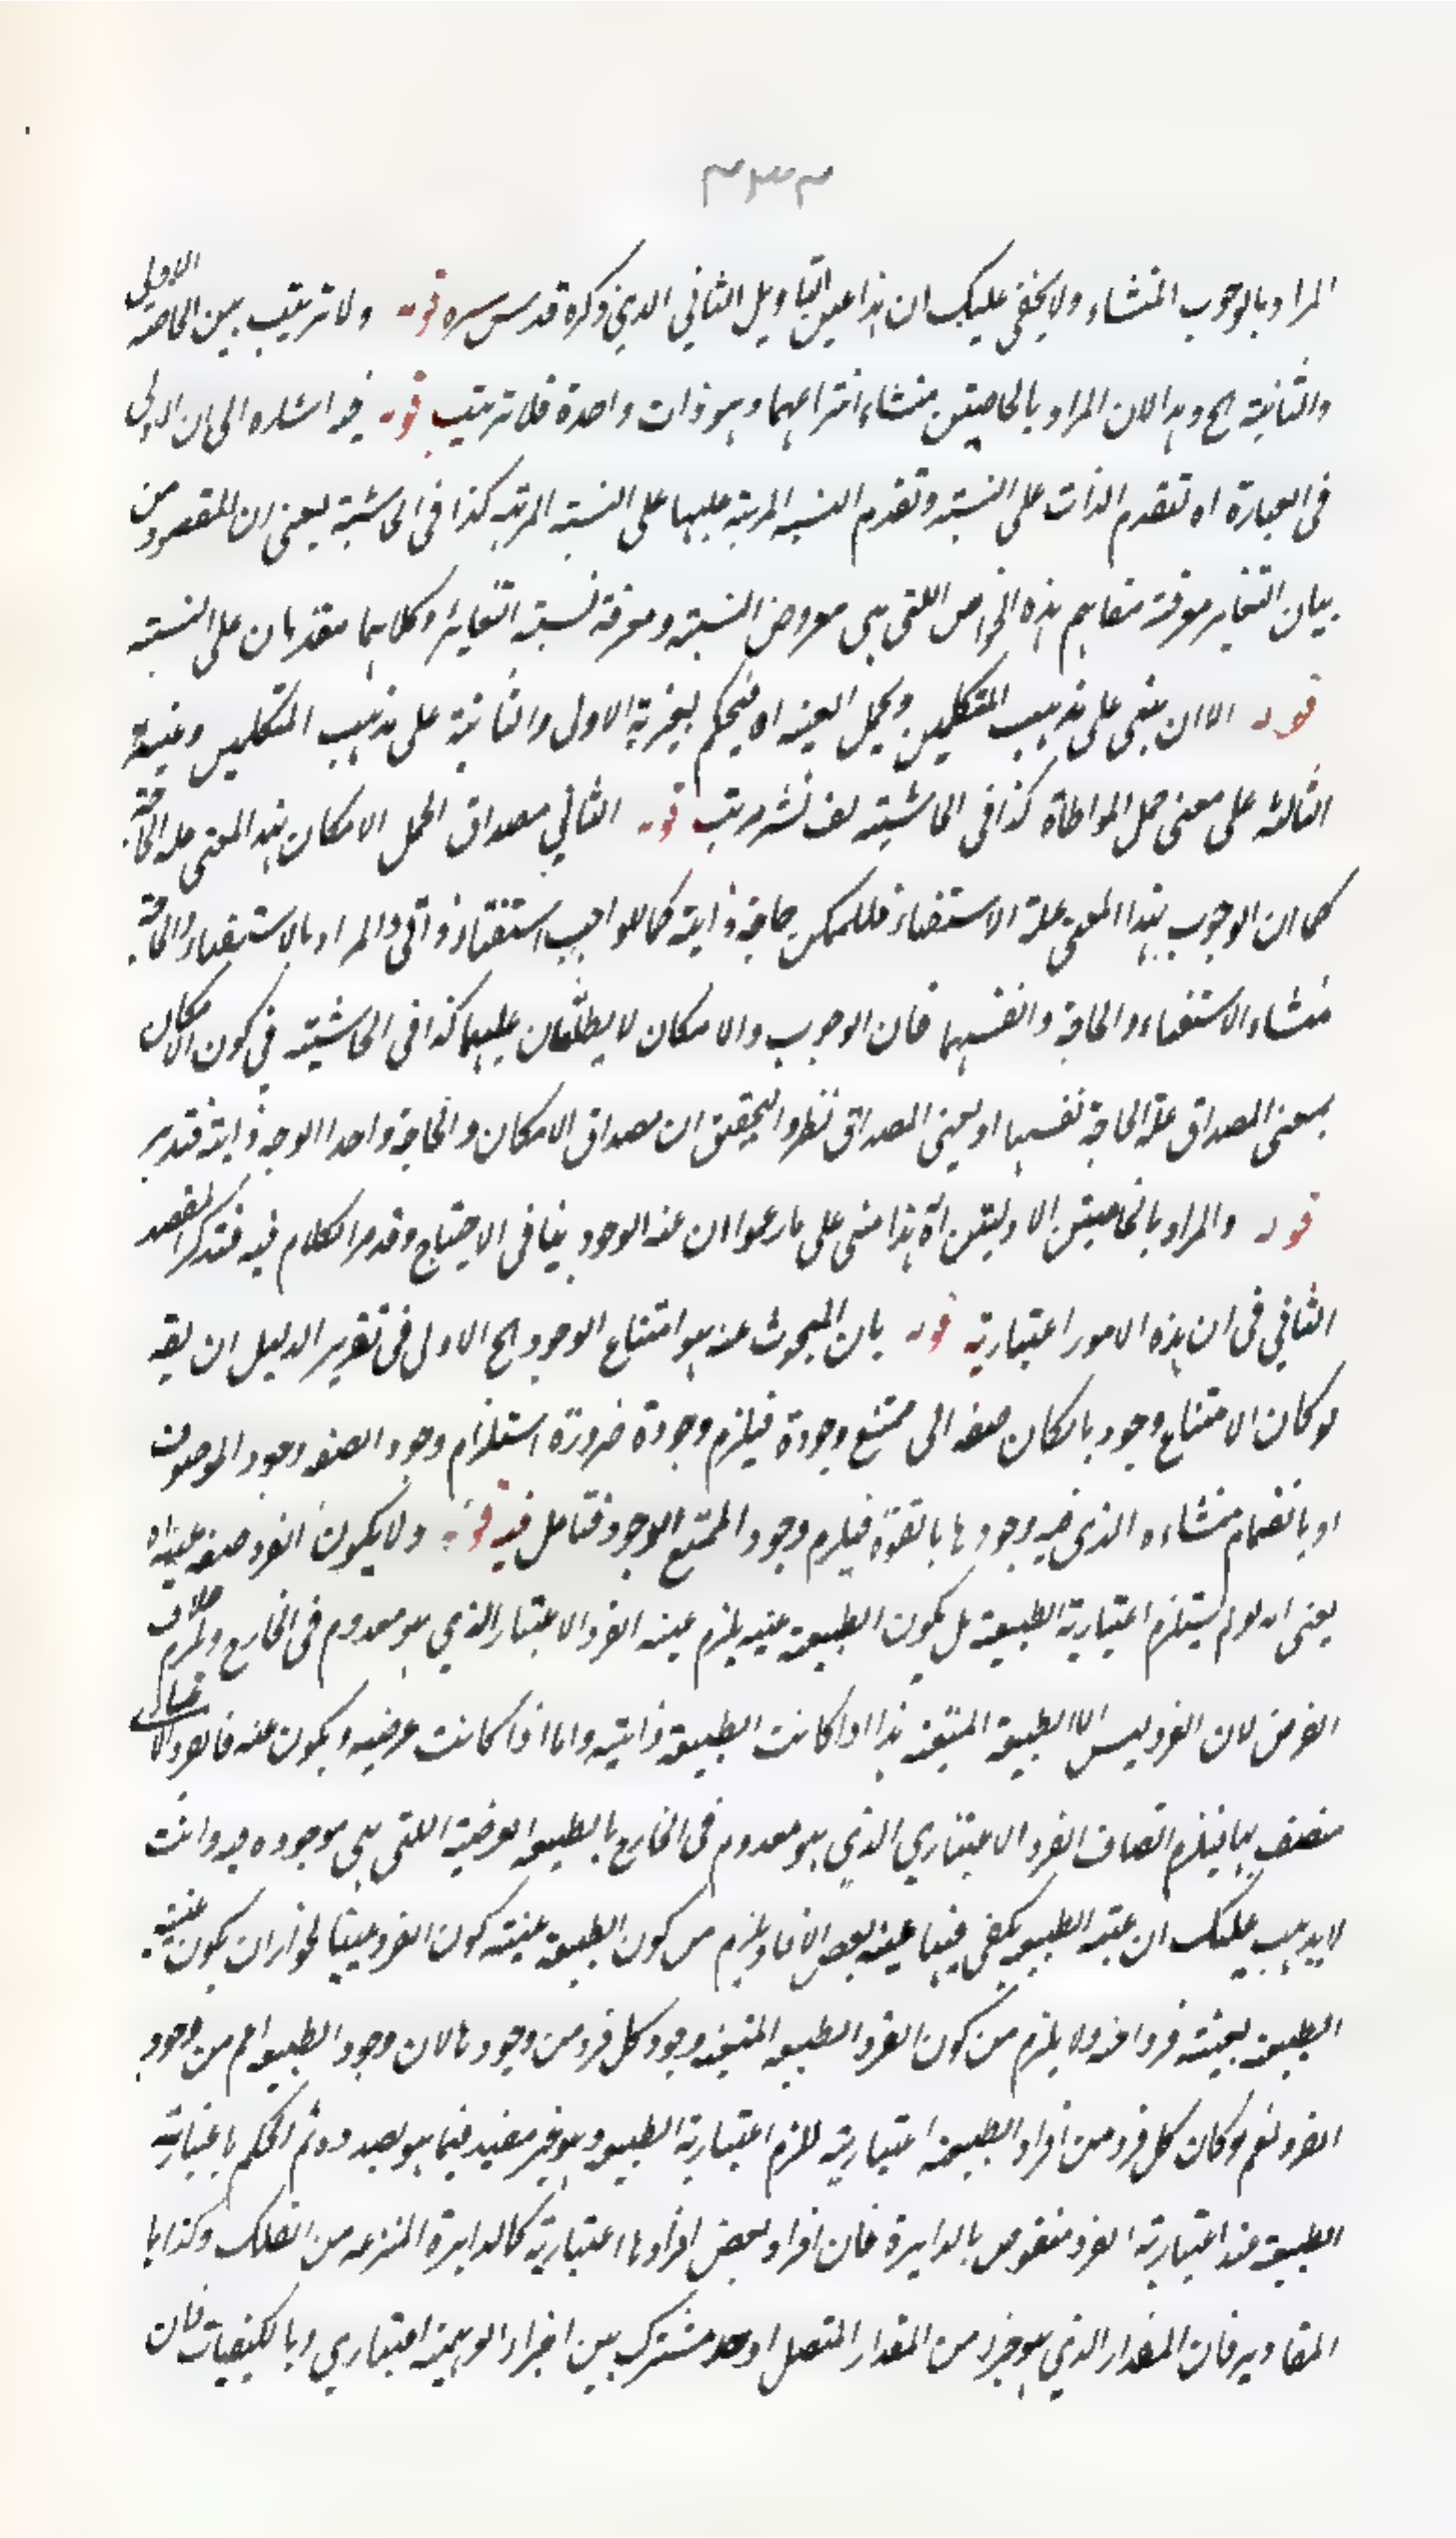 المراد بالوجوب المنشاء ولا يخفى عليك ان هذا عين التاويل الثاني الذي ذكره قدس سره قوله ولا ترتيب بين الخاصة الاولى
والثانية الخ وهذا لان المراد بالخاصتين منشاء انتزاعهما وهو ذات واحدة فلا ترتيب قوله فيه اشاره الى ان الاولى
في العبارة اه تقدم الذات على النسبة وتقدم النسبه المرتبة عليها على النسبة المرتبه كذا في الحاشية يعني ان المقصود من
بيان التغاير معرفة مفاهيم هذه الخواص اللتي هي معروض النسبة ومعرفة نسبة التغاير وكلاهما مقدمان على النسبة
قوله الا ان يبنى على مذهب المتكلمين ويحمل العينه اه فيحكم بغيرية الاولى والثانية على مذهب المتكلمين وعينية
الثالثه على معنى حمل المواطاة كذا في الحاشية لف نشر مرتب قوله الثاني مصداق الحمل الامكان بهذا المعنى علة الحاجة
كما ان الوجوب بهذا المعنى علة الاستغناء فللممكن حاجة ذاتية كما للواجب استغناء ذاتي والمراد بالاستغناء والحاجة
منشاء الاستغناء والحاجة وانفسهما فان الوجوب والامكان لا يطلقان عليهما كذا في الحاشية في كون الامكان
بمعنى المصداق علة الحاجة نفسها او بمعنى المصداق نظر والتحقيق ان مصداق الامكان والحاجة واحد الوجه ذاتية فتدبر
قوله والمراد بالخاصيتين الاوليتين اه هذا مبنى على ما زعموا ان عنه الوجود ينافي الاحتياج وقد مر الكلام فيه فتذكر المقصد
الثاني في ان هذه الامور اعتبارية قوله بان المبحوث عنه هو امتناع الوجود الخ الاولى في تقرير الدليل ان يقه
لو كان الامتناع وجود بالكان صفه الى ممتنع وجودة فيلزم وجودة ضرورة استلزام وجود الصفه وجود الموصوف
او بانضمام منشاءه الذي فيه وجودها بالقوة فيلزم وجود الممتنع الوجود فتامل فيه قوله ولا يكون الفرد صفه عينيه اه
يعني انه لو لم يستلزم اعتبارية الطبيعة بل يكون الطبيعة عينيه يلزم عينيه الفرد الاعتبار الذي هو معدوم في الخارج ويلزم خلاف
الفرض لان الفرد ليس الا الطبيعة المتعينه هذا اذا كانت الطبيعة ذاتية واما اذا كانت عرضيه ويكون عنه فالفرد الاعتباري
متصف بها فيلزم اتصاف الفرد الاعتباري الذي هو معدوم في الخارج بالطبيعه العرضية اللتي هي موجوده فيه وانت
لا يذهب عليك ان عينية الطبيعة يكفي فيها عينية بعض الافراد ويلزم من كون الطبيعة عينية كون الفرد عينيا لجواز ان يكون عينية
الطبيعة بعينيه فرد اخر ولا يلزم من كون الفرد الطبيعه المتعينه وجود كل فرد من وجودها لان وجود الطبيعه اعم من وجود
الفرد نعم لو كان كل فرد من افراد الطبيعة اعتبارية للزم اعتبارية الطبيعه وهو غير مفيد فيما هو بصدده ثم الحكم باعتبارية
الطبيعة عند اعتبارية الفرد منقوض بالدايرة فان افراد بعض افرادها اعتبارية كالدايرة المنتزعه من الفلك وكذا با
المقادير فان المقدار الذي هو جزء من المقدار المتصل او حد مشترك بين اجزاء الوهمية اعتباري وبالكيفيات فان